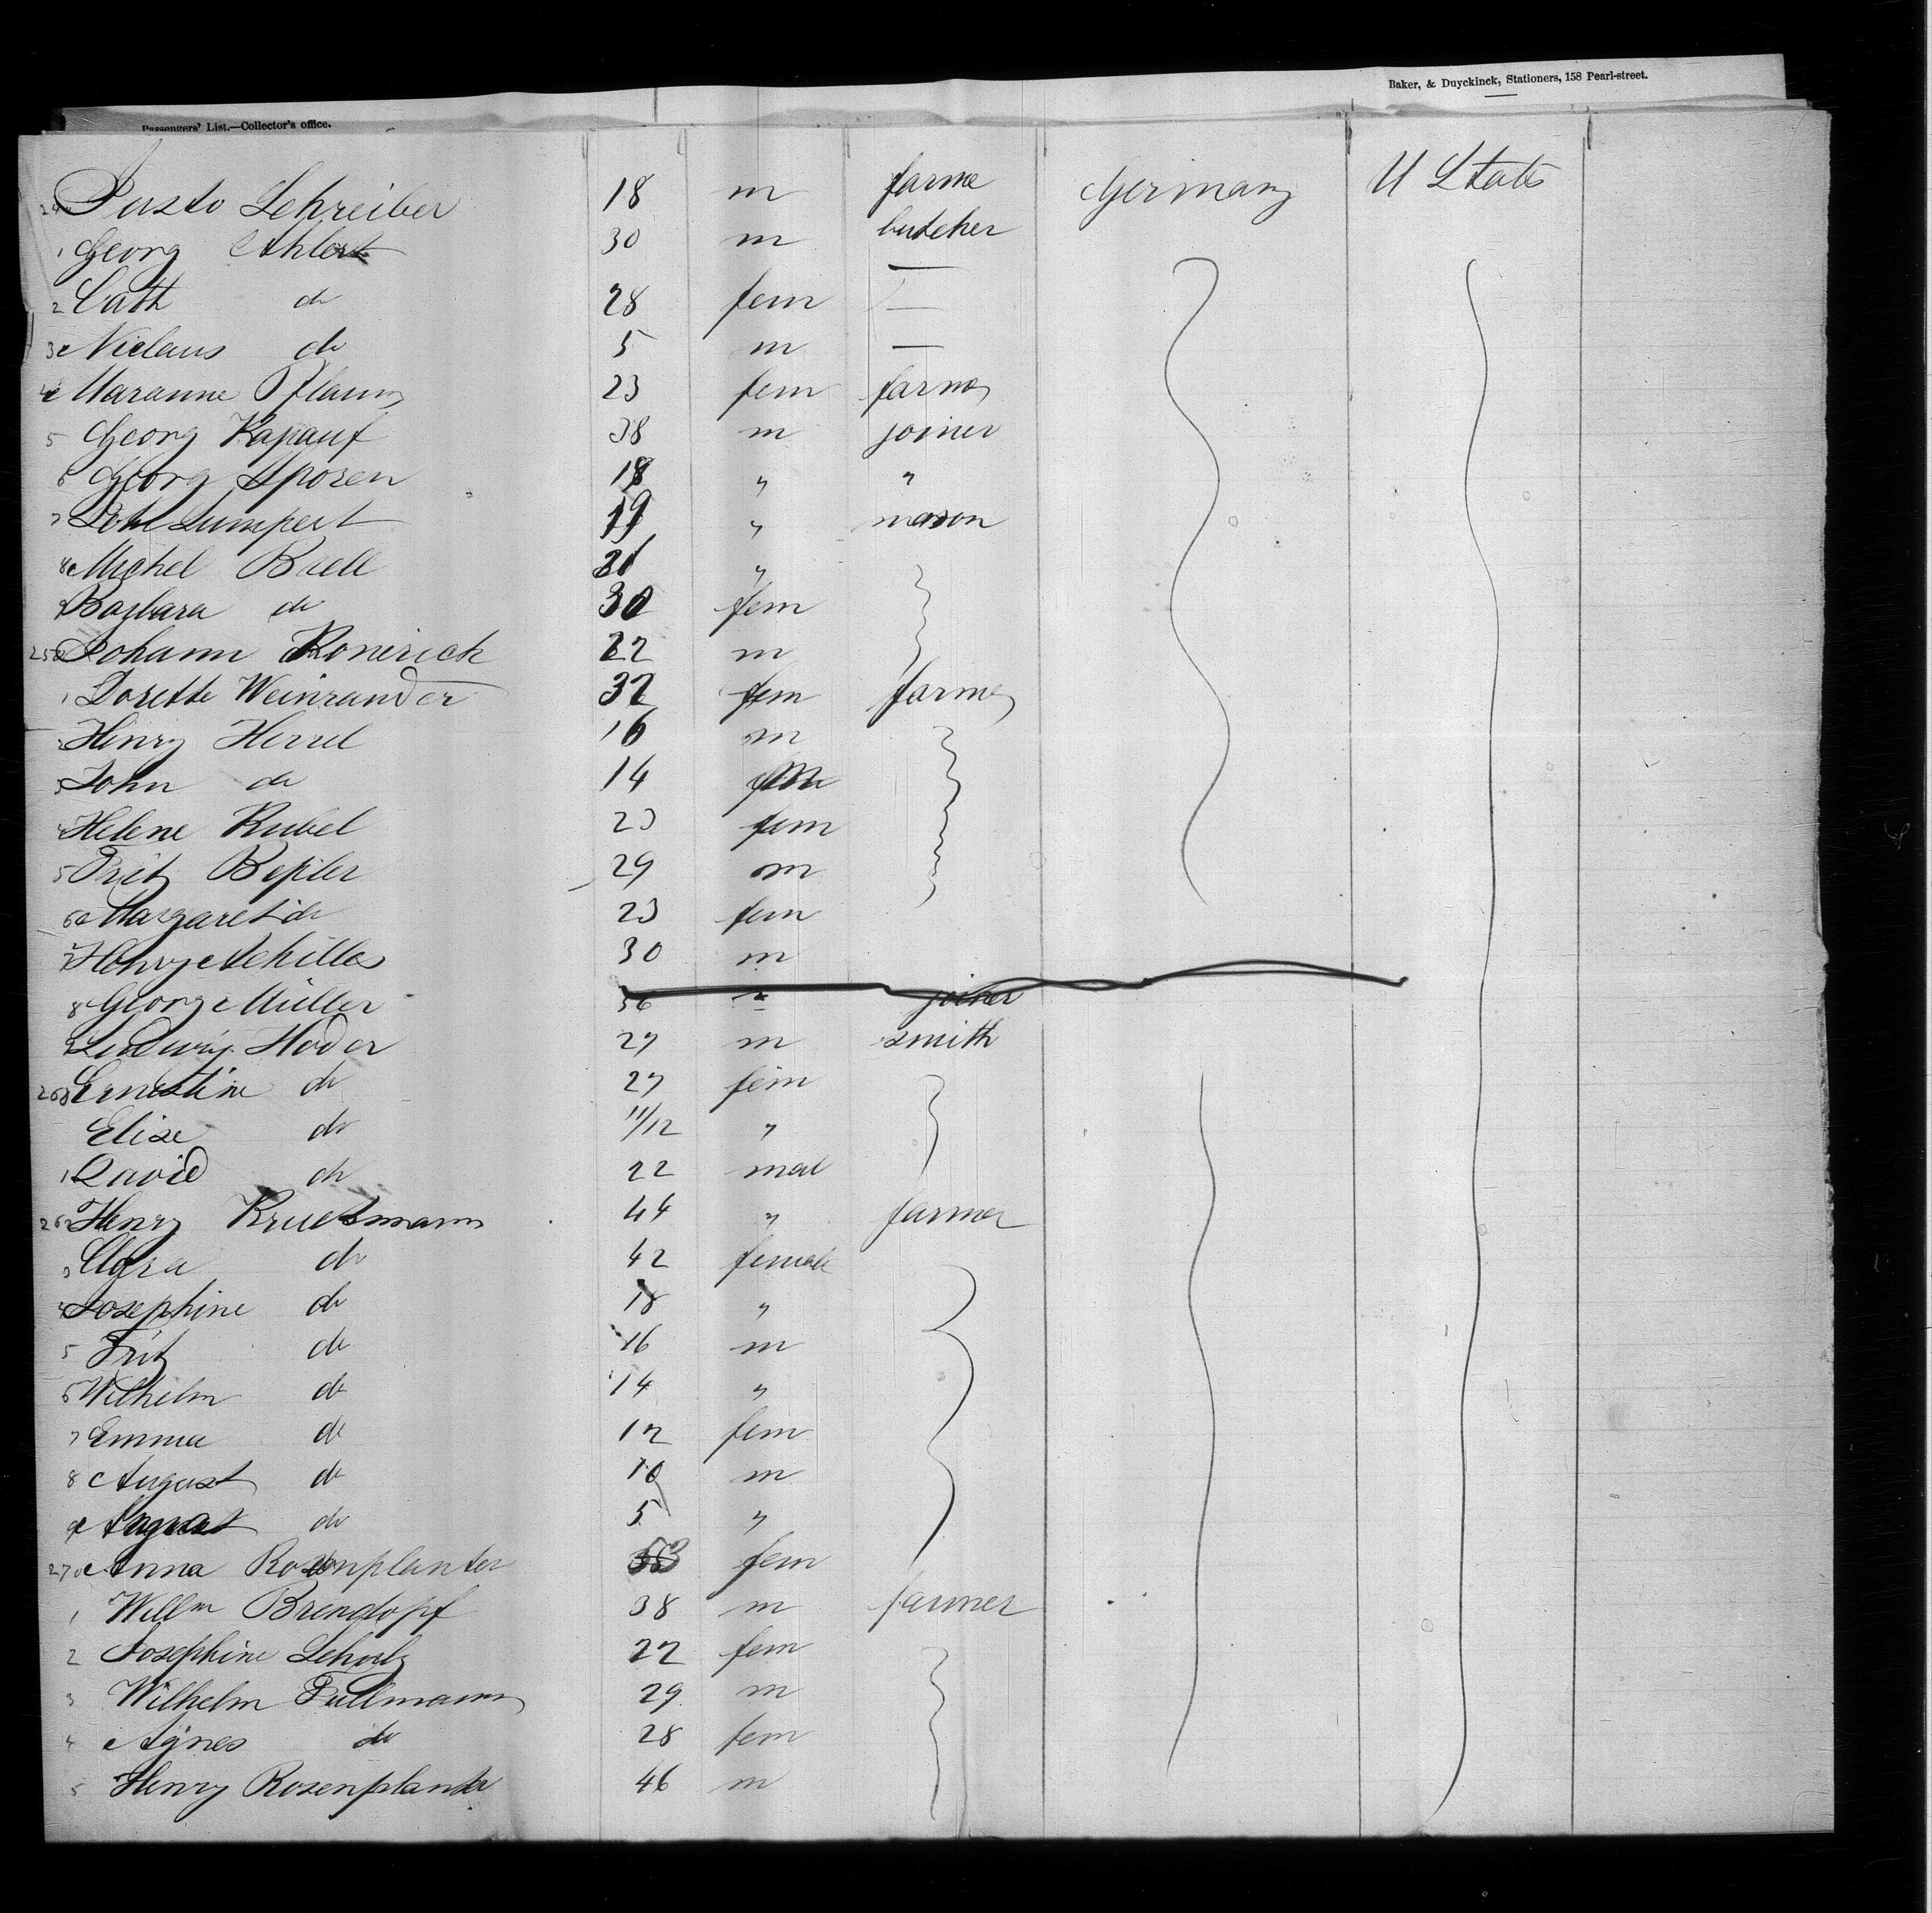 Baker, & Duyckinck, Stationers, 158 Pearl-street.
Passengers' List.—Collector's office.
24 Justo Schreiber 18 m farme Germany U States
1 Georg Ahlert 30 m butcher
2 Cath do 28 fem —
3 Niclaus do 5 m —
4 Maranne Pflaum 23 fem farmer
5 Georg Kapauf 38 m joiner
6 Georg Sporen 18 " "
7 Lumpert 19 " mason
8 Michel Buell "
9 Barbara do 30 fem
250 Johann Konerick 22 m
1 Dorette Weinrander 32 fem farmer
2 Henry Herrel 16 m
3 John do 14
4 Helene Rubel 23 fem
5 Fritz Bepler 29 m
6 Margaret do 23 fem
7 Henry Achilles 30 m
8 Georg Müller 36 " joiner
9 Ludwig Hoder 27 m smith
260 Ernestine do 27 fem
Elise do 11/12 "
1 David do 22 mal
262 Henry Kruetsmann 44 " farmer
3 Clara do 42 female
4 Josephine do 18 "
5 Fritz do 16 m
6 Wilhelm do 14 "
7 Emma do 12 fem
8 August do 10 m
9 August do 5 "
270 Anna Rosenplanter fem
1 Willm Brendopf 38 m farmer
2 Josephine Scholz 22 fem
3 Wilhelm Tullmann 29 m
4 Agnes do 28 fem
5 Henry Rosenplanter 46 m